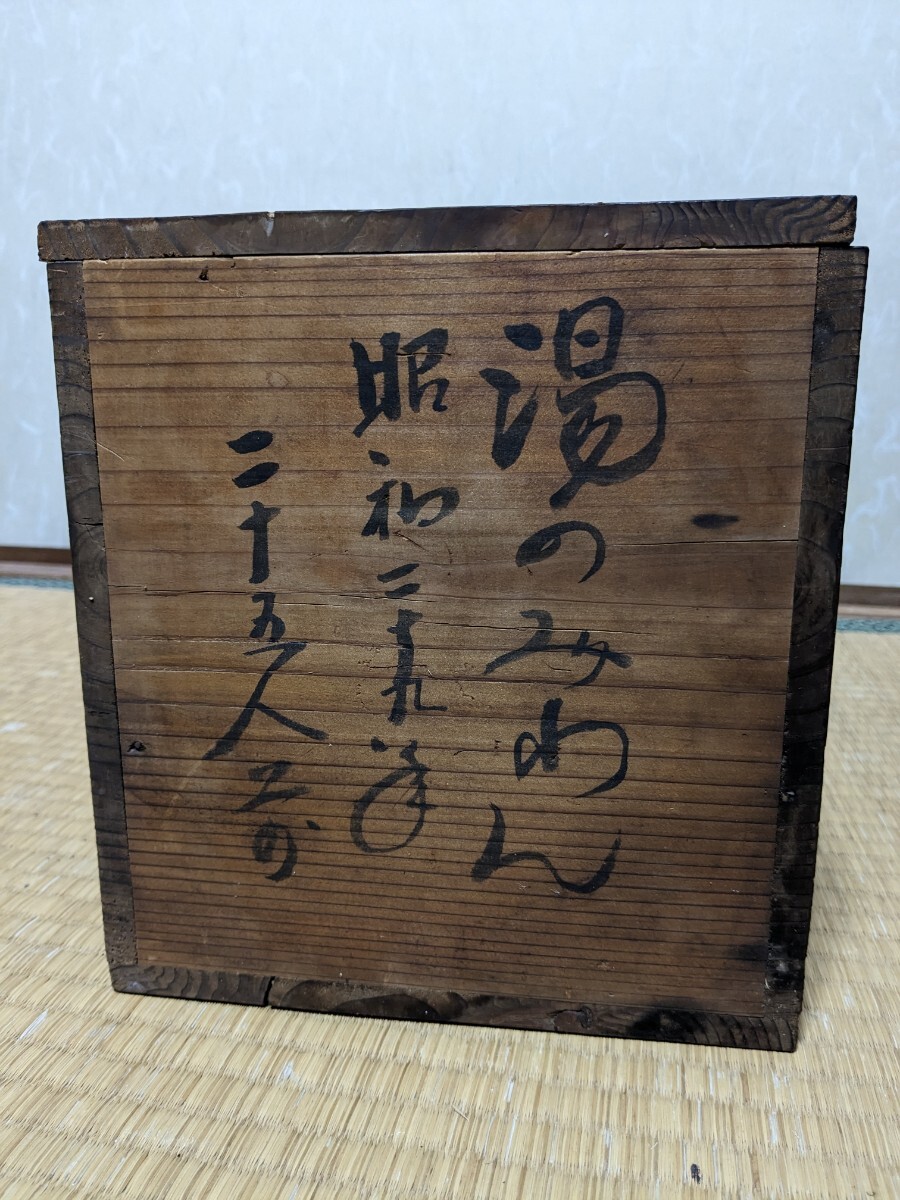 湯のみわん
昭和二十九年
二十五人